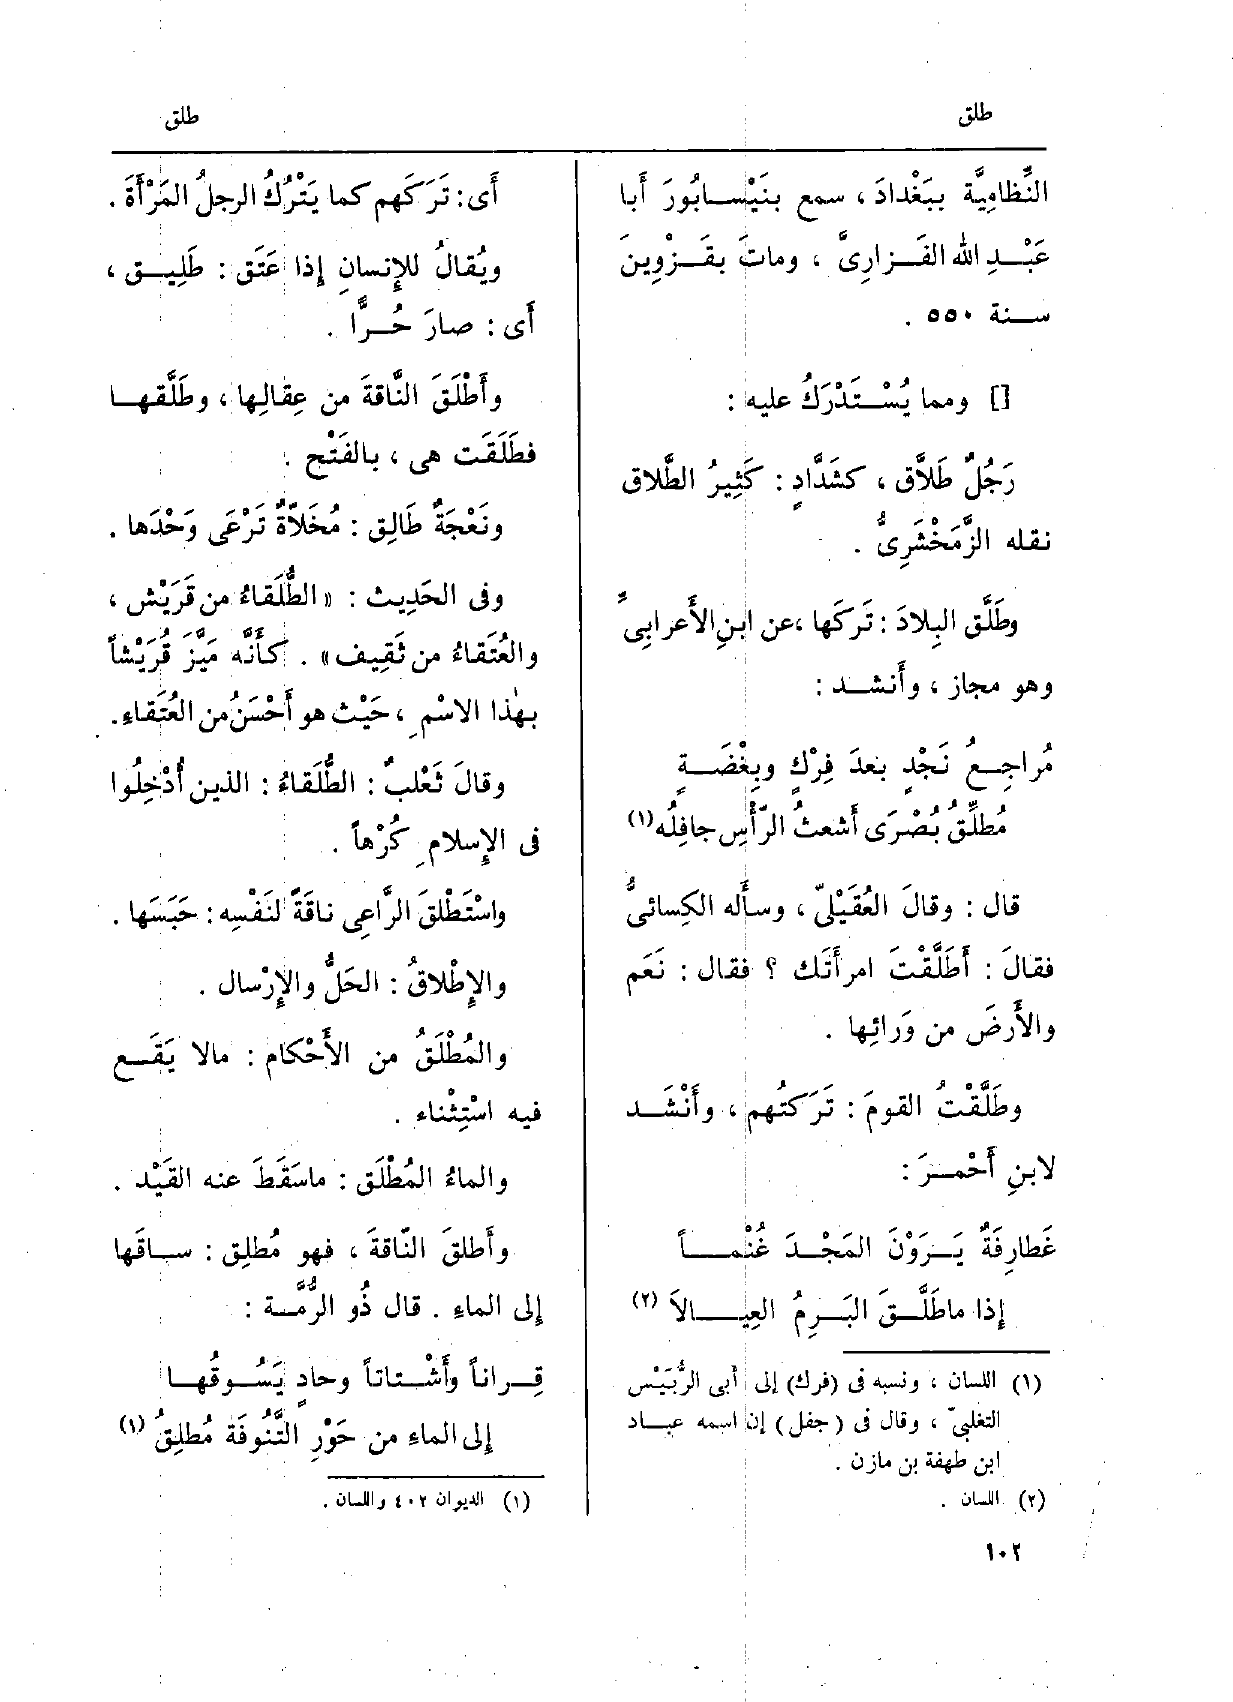 طلق
طلق
النِّظامِيَّة ببَغْدادَ ، سمع بنَيْسابُورَ أَبا
عَبْدِ اللّٰه الفَزارِىَّ ، وماتَ بقَزْوِينَ
سنة ٥٥٠ .
[] ومما يُسْتَدْرَكُ عليه :
رَجُلٌ طَلاَّق ، كشَدَّادٍ : كَثِيرُ الطَّلاق
نقله الزَّمَخْشَرِىُّ .
وطَلَّق البِلادَ : تَرَكَها ،عن ابنِ الأَعرابِىِّ
وهو مجاز ، وأَنشد :
مُراجِعُ نَجْدٍ بعدَ فِرْكٍ وبِغْضَةٍ
مُطلِّقُ بُصْرَى أَشعثُ الرّأْسِ جافِلُه (١)
قال : وقالَ العُقَيْلِىّ ، وسأَله الكِسائىُّ
فقالَ : أَطَلَّقْتَ امرأَتَك ؟ فقال : نَعَم
والأَرضَ من وَرائِها .
وطَلَّقْتُ القومَ : تَرَكتُهم ، وأَنْشَد
لابنِ أَحْمرَ :
غَطارِفَةٌ يَرَوْنَ المَجْدَ غُنْماً
إِذا ماطَلَّقَ البَرِمُ العِيالاَ (٢)
(١) اللسان ، ونسبه فى (فرك) إلى أبى الرُّبَيْس
التغلبىّ ، وقال فى (جفل) إن اسمه عباد
ابن طهفة بن مازن .
(٢) اللسان .
أَى : تَرَكَهم كما يَتْرُكُ الرجلُ المَرْأَةَ .
ويُقالُ للإِنسانِ إِذا عَتَق : طَلِيق ،
أَى : صارَ حُرًّا .
وأَطْلَقَ النَّاقةَ من عِقالِها ، وطَلَّقها
فطَلَقَت هى ، بالفَتْح .
ونَعْجَةٌ طَالِق : مُخَلاَّةٌ تَرْعَى وَحْدَها .
وفى الحَدِيث : « الطُّلَقاءُ من قُرَيْش ،
والعُتَقاءُ من ثَقِيف » . كأَنَّه مَيَّز قُرَيْشاً
بهٰذا الاسْمِ ، حَيْث هو أَحْسَنُ من العُتَقاءِ.
وقالَ ثَعْلبٌ : الطُّلَقاءُ : الذين أُدْخِلُوا
فى الإِسلامِ كُرْهاً .
واسْتَطْلقَ الرَّاعِى ناقَةً لنَفْسِه : حَبَسَها .
والإِطْلاقُ : الحَلُّ والإِرْسال .
والمُطْلَقُ من الأَحْكامِ : مالا يَقَع
فيه اسْتِثْناء .
والماءُ المُطْلَق : ماسَقَطَ عنه القَيْد .
وأَطلقَ النّاقةَ ، فهو مُطلِق : ساقَها
إِلى الماءِ . قال ذُو الرُّمَّة :
قِراناً وأَشْتاتاً وحادٍ يَسُوقُها
إِلى الماءِ من حَوْرِ التَّنُوفَة مُطلِقُ (١)
(١) الديوان ٤٠٢ واللسان .
١٠٢